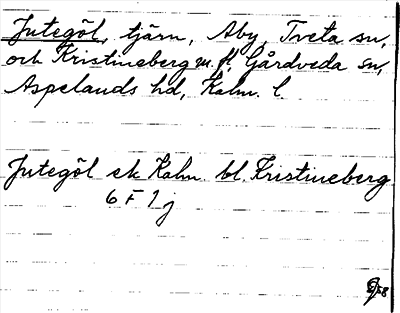 Jutegöl, tjärn, Åby, Tveta sn,
och Kristineberg m. fl, Gårdveda sn,
Aspelands hd, Kalm. l.
Jutegöl ek Kalm. bl. Kristineberg
6 F 1 j